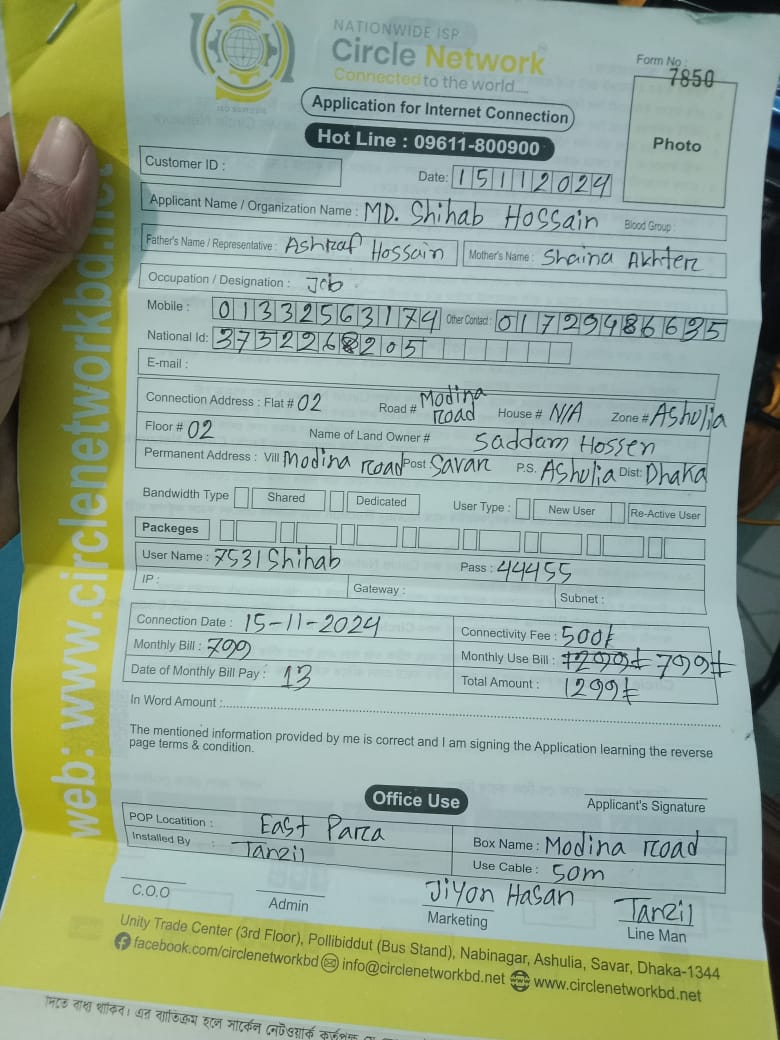 NATIONWIDE ISP
Circle Network
Connected to the world.....
Form No :
7850
Application for Internet Connection
Hot Line : 09611-800900
Photo
Customer ID :
Date: 15112024
Applicant Name / Organization Name : MD. Shihab Hossain Blood Group :
Father's Name / Representative : Ashraf Hossain Mother's Name : Shaina Akhter
Occupation / Designation : Job
Mobile : 01332563174 Other Contact : 01729486635
National Id: 3732268205
E-mail :
Connection Address : Flat # 02 Road # Modina road House # N/A Zone # Ashulia
Floor # 02 Name of Land Owner # Saddam Hossen
Permanent Address : Vill Modina road Post Savar P.S. Ashulia Dist: Dhaka
Bandwidth Type Shared Dedicated User Type : New User Re-Active User
Packeges
User Name : 7531Shihab Pass : 44455
IP : Gateway : Subnet :
Connection Date : 15-11-2024 Connectivity Fee : 500৳
Monthly Bill : 799 Monthly Use Bill : 1299৳ 799৳
Date of Monthly Bill Pay : 13 Total Amount : 1299৳
In Word Amount :
The mentioned information provided by me is correct and I am signing the Application learning the reverse
page terms & condition.
Applicant's Signature
Office Use
POP Locatition : East Para Box Name : Modina road
Installed By : Tanzil Use Cable : 50m
Jiyon Hasan Tanzil
C.O.O Admin Marketing Line Man
Unity Trade Center (3rd Floor), Pollibiddut (Bus Stand), Nabinagar, Ashulia, Savar, Dhaka-1344
facebook.com/circlenetworkbd info@circlenetworkbd.net www.circlenetworkbd.net
web: www.circlenetworkbd.net
দিতে বাধ্য থাকিব। এর ব্যতিক্রম হলে সার্কেল নেটওয়ার্ক